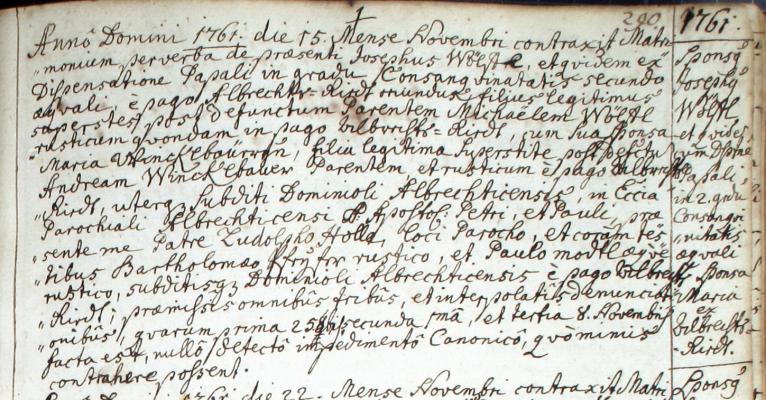 290
Annô Domini 1761. die 15. Mense Novembri contraxit Matri
"monium per verba de præsenti Josephus Wöltl, et quidem ex
Dispensatione Papali in gradu Consangvinitatis secundo
æqvali, è pago Albrechts-Riedt oriundus filius legitimus
superstes post defunctum Parentem Michaelem Wöltl
rusticum qvondam in pago Vilbrechts-Riedt, cum sua Sponsa
Maria filia legitima Superstite post
Andream Winckelbauer Parentem et rusticum è pago
"Riedt, uterq; subditi Dominioli Albrechticensis, in Eccia
Parochiali Albrechticensi Apostol: Petri, et Pauli, præ
"sente me Patre Ludolpho loci Parocho, et coram tes
"tibus Bartholomæo rustico, et Paulo
rustico, subditisq; Dominioli Albrechticensis è pago Vilbrechts
"Riedt; præmissis omnibus et interpolatis denunciati
"onibus, qvarum prima 25 secunda et tertia 8. Novembris
facta est, nullô detectô impedimentô Canonicô, qvô minùs
contrahere possent.
1761. die 22. Mense Novembri contraxit Matri
1761.
Sponsg
Josephg
Wöltl
et qvidem
cum Dspne
Papali
in 2. gradu
Consangvi
"nitatis
æqvali
Sponsa
Maria
ex
Vilbrechts
-Riedt.
Sponsg